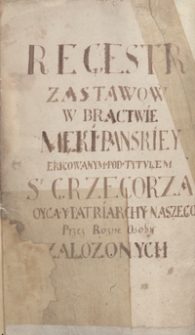 REGESTR
ZASTAWOW
W BRACTWIE
MĘKI PANSKIEY
ERIGOWANYM POD TYTULEM
Sº GRZEGORZA
OYCA Y PATRIARCHY NASZEGO
Przez Rozne Osoby
ZALOZONYCH